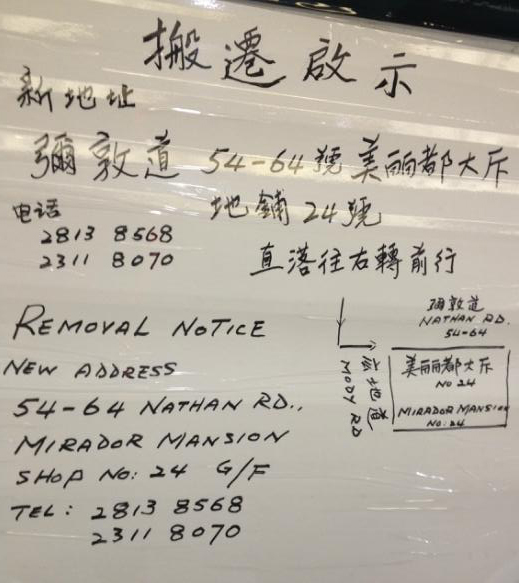 搬遷啟示
新地址
彌敦道 54-64號美丽都大厅
地鋪24號
电话
2813 8568
2311 8070
直落往右轉前行
REMOVAL NOTICE
NEW ADDRESS
54-64 NATHAN RD.,
MIRADOR MANSION
SHOP NO: 24 G/F
TEL: 2813 8568
2311 8070
彌敦道
NATHAN RD.
54-64
美丽都大厅
NO 24
MIRADOR MANSION
NO: 24
MODY RD